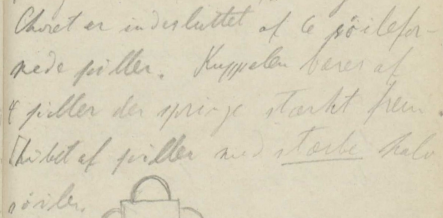 Choret er indesluttet af 6 søilefor-
mede piller. Kuppelen bæres af
4 piller der springe stærkt frem.
af piller med stærke halv
søiler.